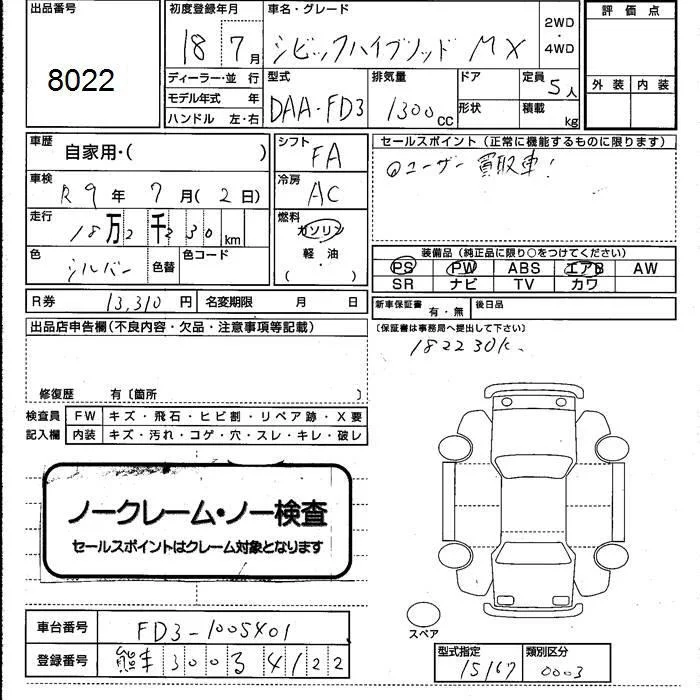 出品番号
8022
初度登録年月
18 7月
車名・グレード
シビックハイブリッド MX
2WD
・
4WD
評価点
外装 内装
ディーラー・並 行
モデル年式 年
ハンドル 左・右
型式
DAA-FD3
排気量
1300cc
ドア
形状
定員 5人
積載 kg
車歴
自家用・( )
シフト
FA
セールスポイント(正常に機能するものに限ります)
@ユーザー買取車!
車検
R9年 7月(2日)
冷房
AC
走行
18万2千230km
燃料
ガソリン
軽油
・
( )
色
シルバー
色替
色コード
装備品(純正品に限り○をつけてください)
PS PW ABS エアB AW
SR ナビ TV カワ
R券 13,310円
名変期限 月 日
新車保証書
有・無
後日品
出品店申告欄(不良内容・欠品・注意事項等記載)
〔保証書は事務局へ提出して下さい〕
182230K.
修復歴 有〔箇所 〕
検査員
記入欄
FW キズ・飛石・ヒビ割・リペア跡・X要
内装 キズ・汚れ・コゲ・穴・スレ・キレ・破レ
ノークレーム・ノー検査
セールスポイントはクレーム対象となります
スペア
車台番号 FD3-1005401
登録番号 熊本 300 る 4122
型式指定
15167
類別区分
0003